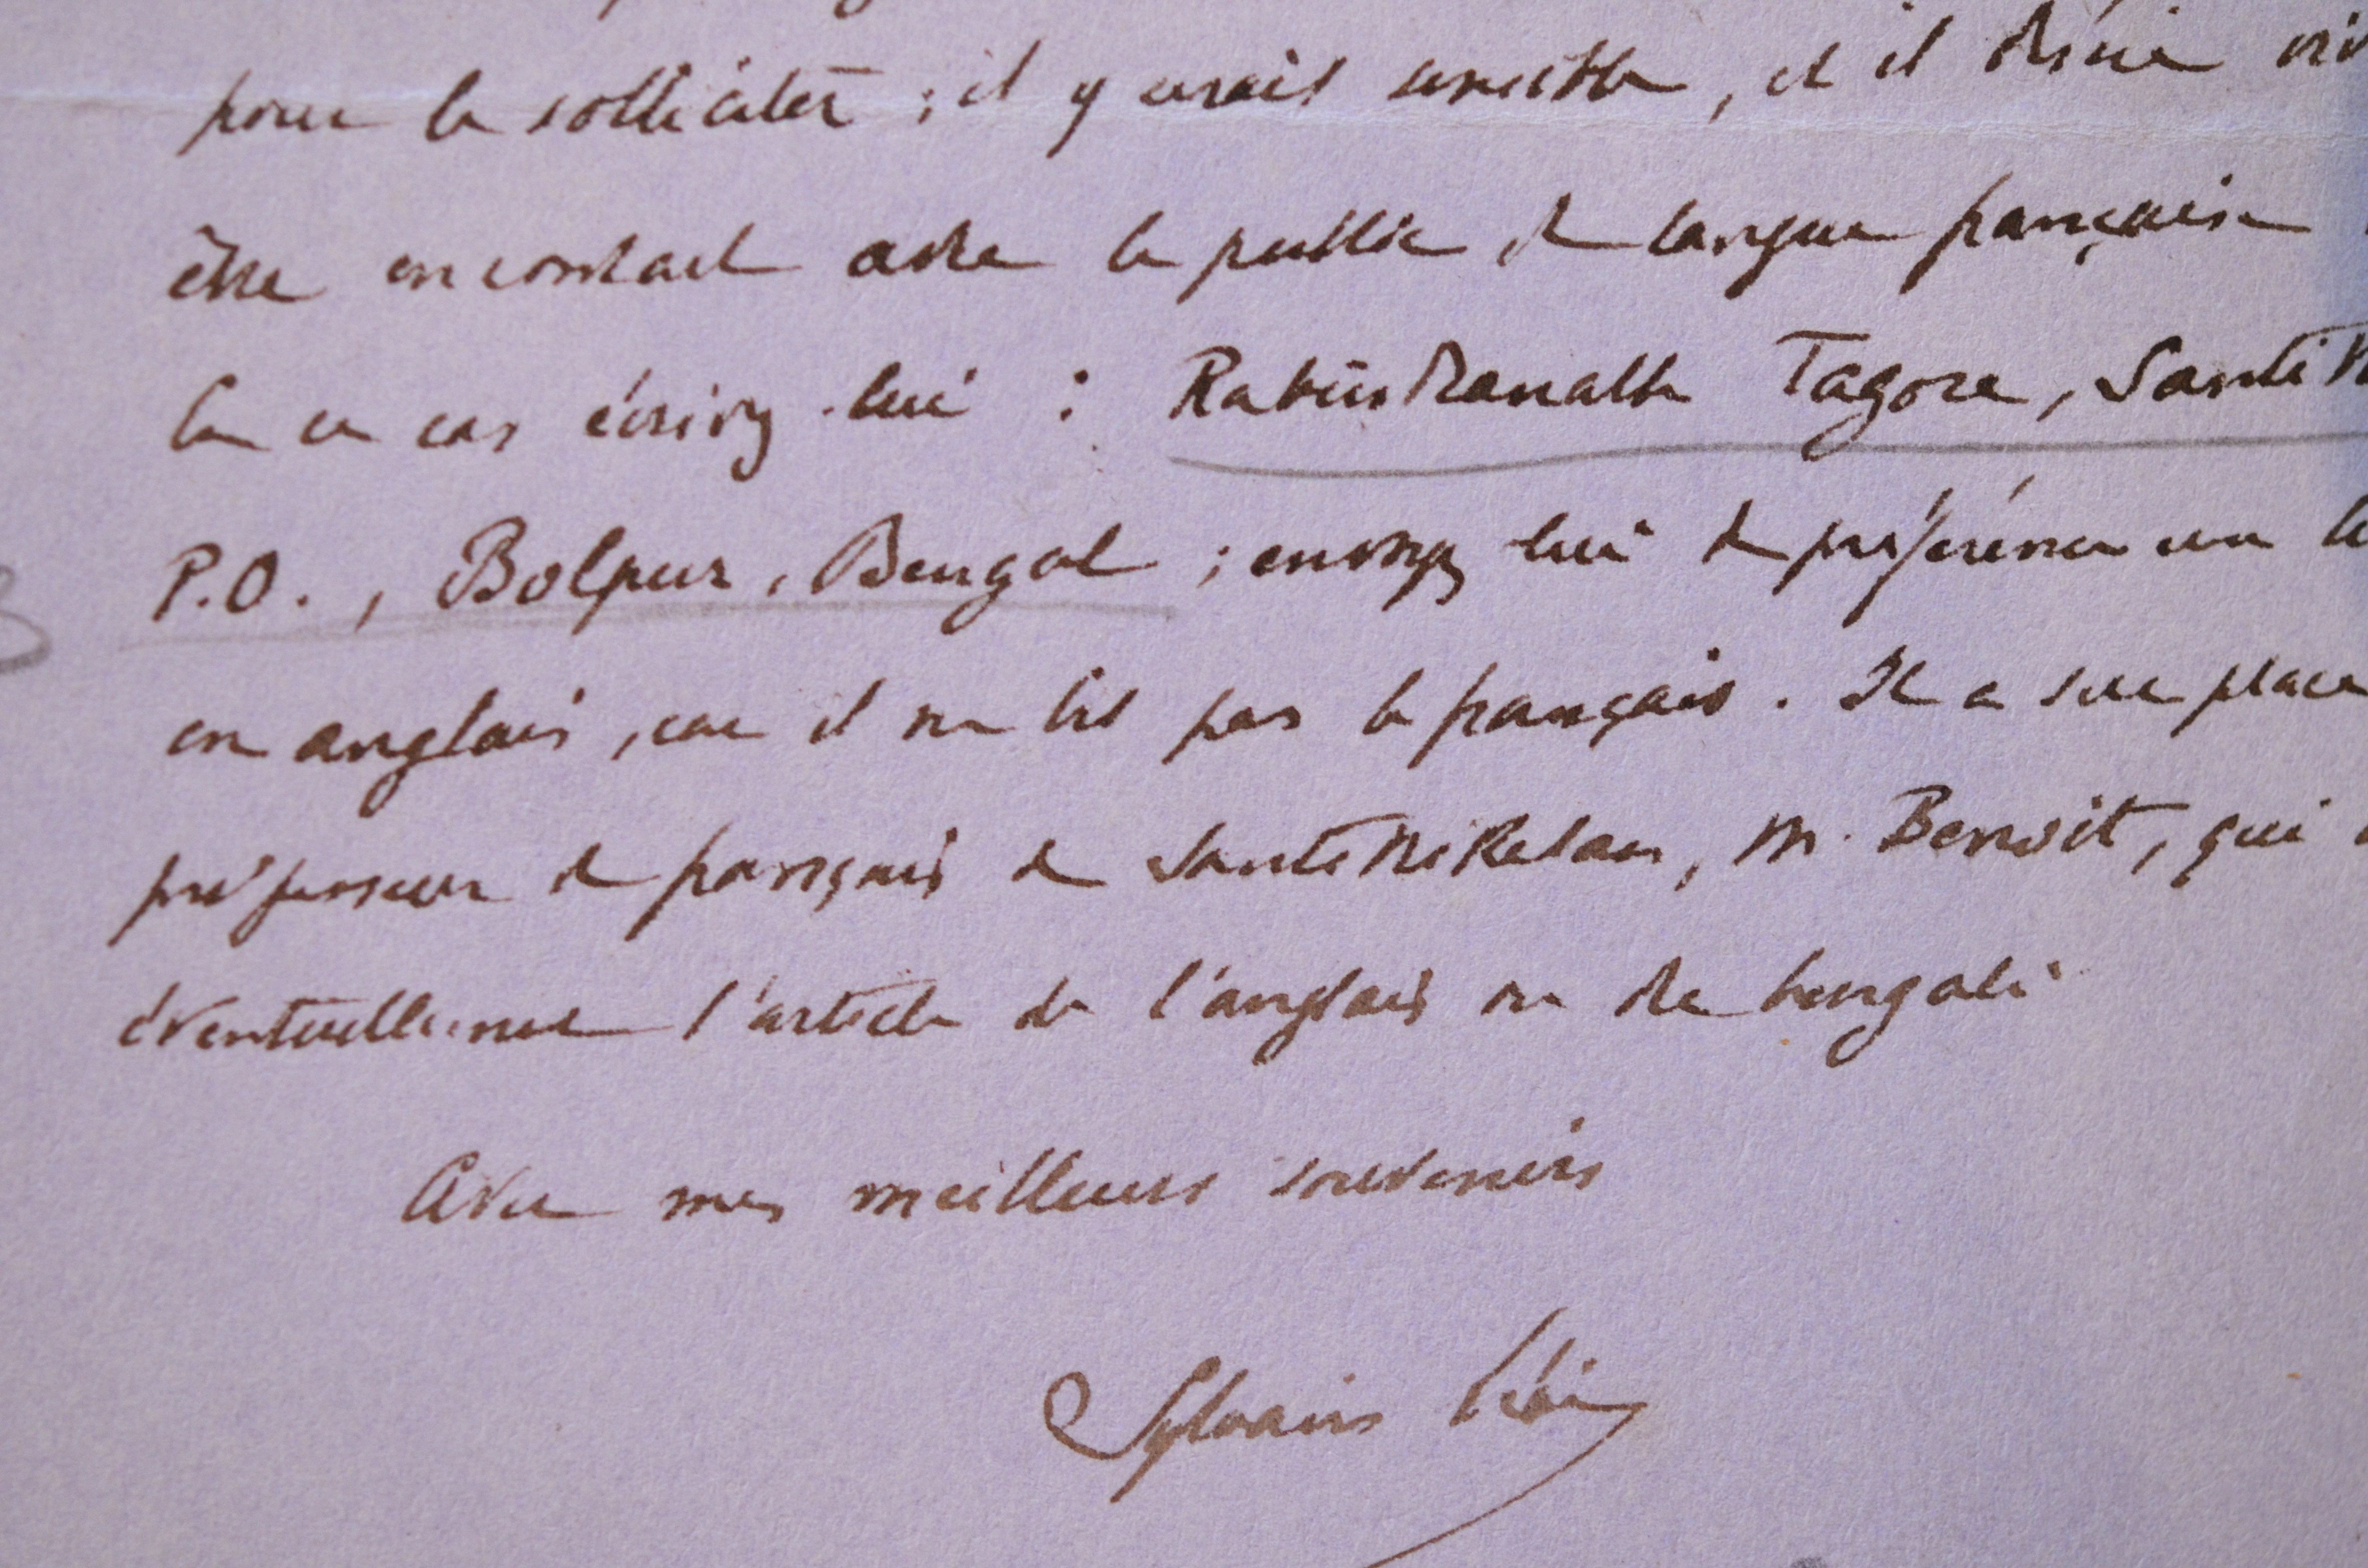 pour le solliciter ; il y serait sensible, et il désire
être en contact avec le public de langue française
En ce cas écrivez-lui : Rabindranath Tagore, Santi
P.O., Bolpur, Bengal ; envoyez lui de préférence une
en anglais, car il ne lit pas le français. Il a sur place
professeur de français de Santiniketan, M. Benoit, qui
éventuellement l'article de l'anglais ou du bengali
Avec mes meilleurs souvenirs
Sylvain Lévi